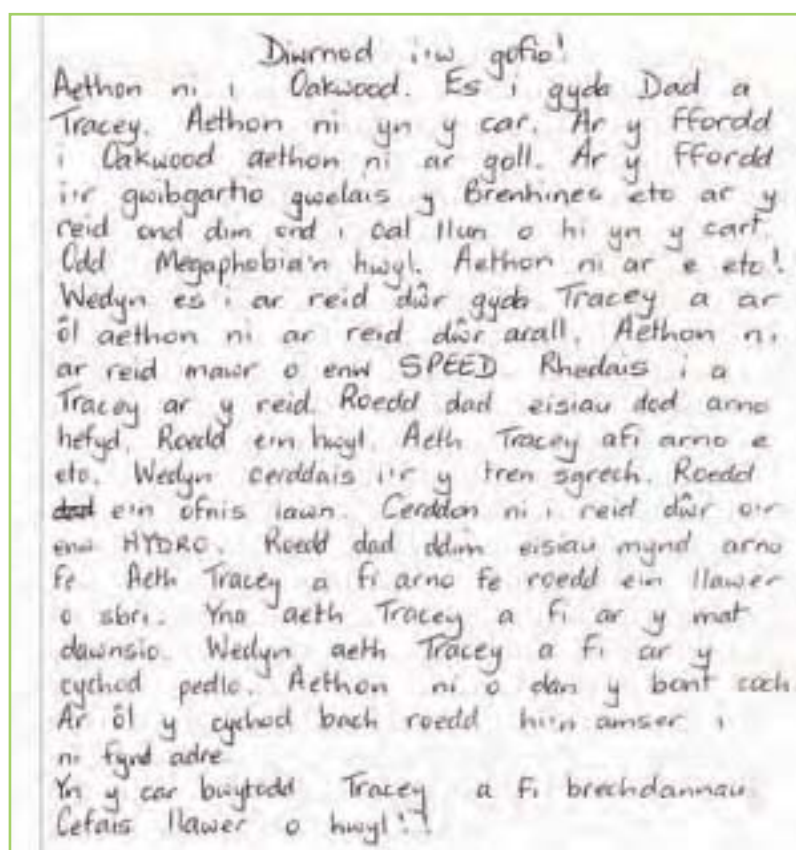 Diwrnod i'w gofio!
Aethon ni i Oakwood. Es i gyda Dad a
Tracey. Aethon ni yn y car. Ar y ffordd
i Oakwood aethon ni ar goll. Ar y ffordd
i'r gwibgartio gwelais y Brenhines eto ar y
reid ond dim ond i cal llun o hi yn y cart.
Odd Megaphobia'n hwyl. Aethon ni ar e eto!
Wedyn es i ar reid dŵr gyda Tracey a ar
ôl aethon ni ar reid dŵr arall. Aethon ni
ar reid mawr o enw SPEED. Rhedais i a
Tracey ar y reid. Roedd dad eisiau dod arno
hefyd. Roedd ein hwyl. Aeth Tracey afi arno e
eto. Wedyn cerddais i'r y tren sgrech. Roedd
e'n ofnis iawn. Cerddon ni i reid dŵr o'r
enw HYDRO. Roedd dad ddim eisiau mynd arno
fe. Aeth Tracey a fi arno fe roedd ein llawer
o sbri. Yna aeth Tracey a fi ar y mat
dawnsio. Wedyn aeth Tracey a fi ar y
cychod pedlo. Aethon ni o dan y bont coch
Ar ôl y cychod bach roedd hi'n amser i
ni fynd adre
Yn y car bwytodd Tracey a fi brechdannau.
Cefais llawer o hwyl!!